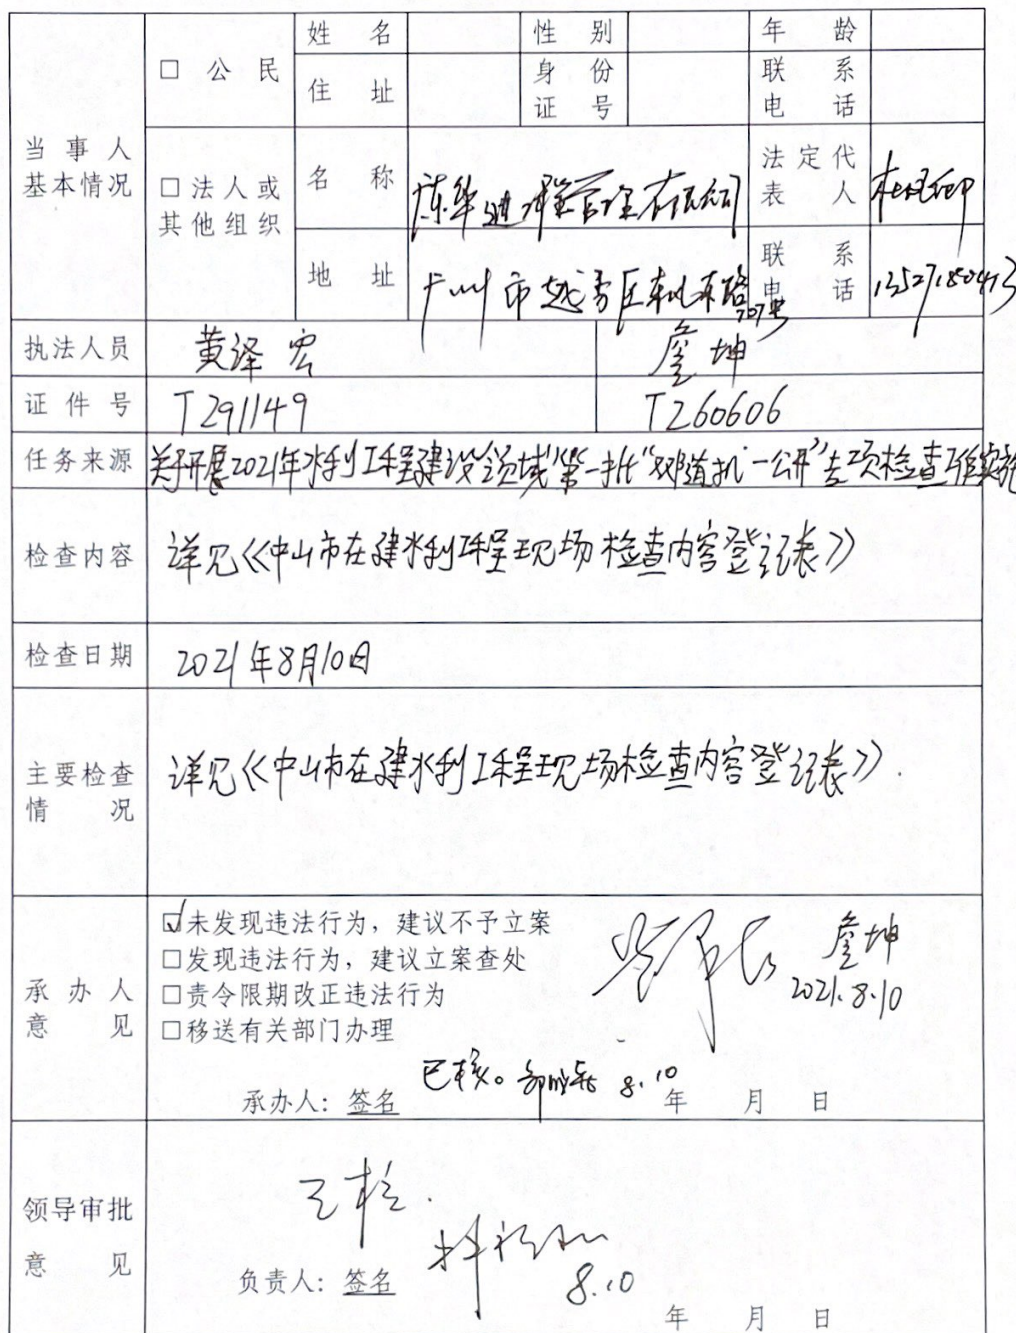 姓 名 性 别 年 龄
□ 公 民
住 址 身 份 证 号 联 系 电 话
当 事 人 基本情况
□法人或其他组织
名 称 有限公司 法定代表人
地 址 广州市越秀区东风东路707号 联 系 电 话
执法人员 黄泽宏 詹坤
证 件 号 T291149 T260606
任务来源 关于开展2021年水利工程建设领域第一批“双随机一公开”专项检查工作实施
检查内容 详见《中山市在建水利工程现场检查内容登记表》
检查日期 2021年8月10日
主要检查情 况 详见《中山市在建水利工程现场检查内容登记表》.
承 办 人 意 见
☑未发现违法行为，建议不予立案
□发现违法行为，建议立案查处
□责令限期改正违法行为
□移送有关部门办理
詹坤
2021.8.10
已核。 8.10
承办人：签名 年 月 日
领导审批意 见
已核.
负责人：签名 8.10
年 月 日